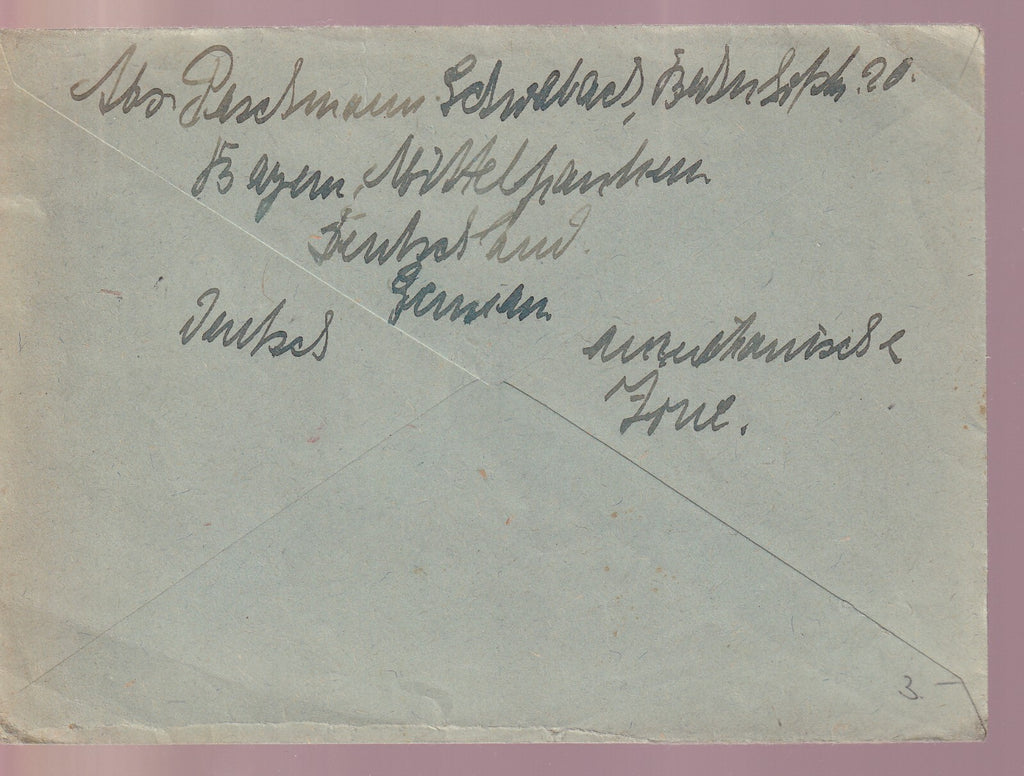 Abs. Paschmann Schwabach, Bahnhofstr. 20.
Bayern, Mittelfranken
Deutschland.
German
Deutsch
amerikanische
Zone.
3.-